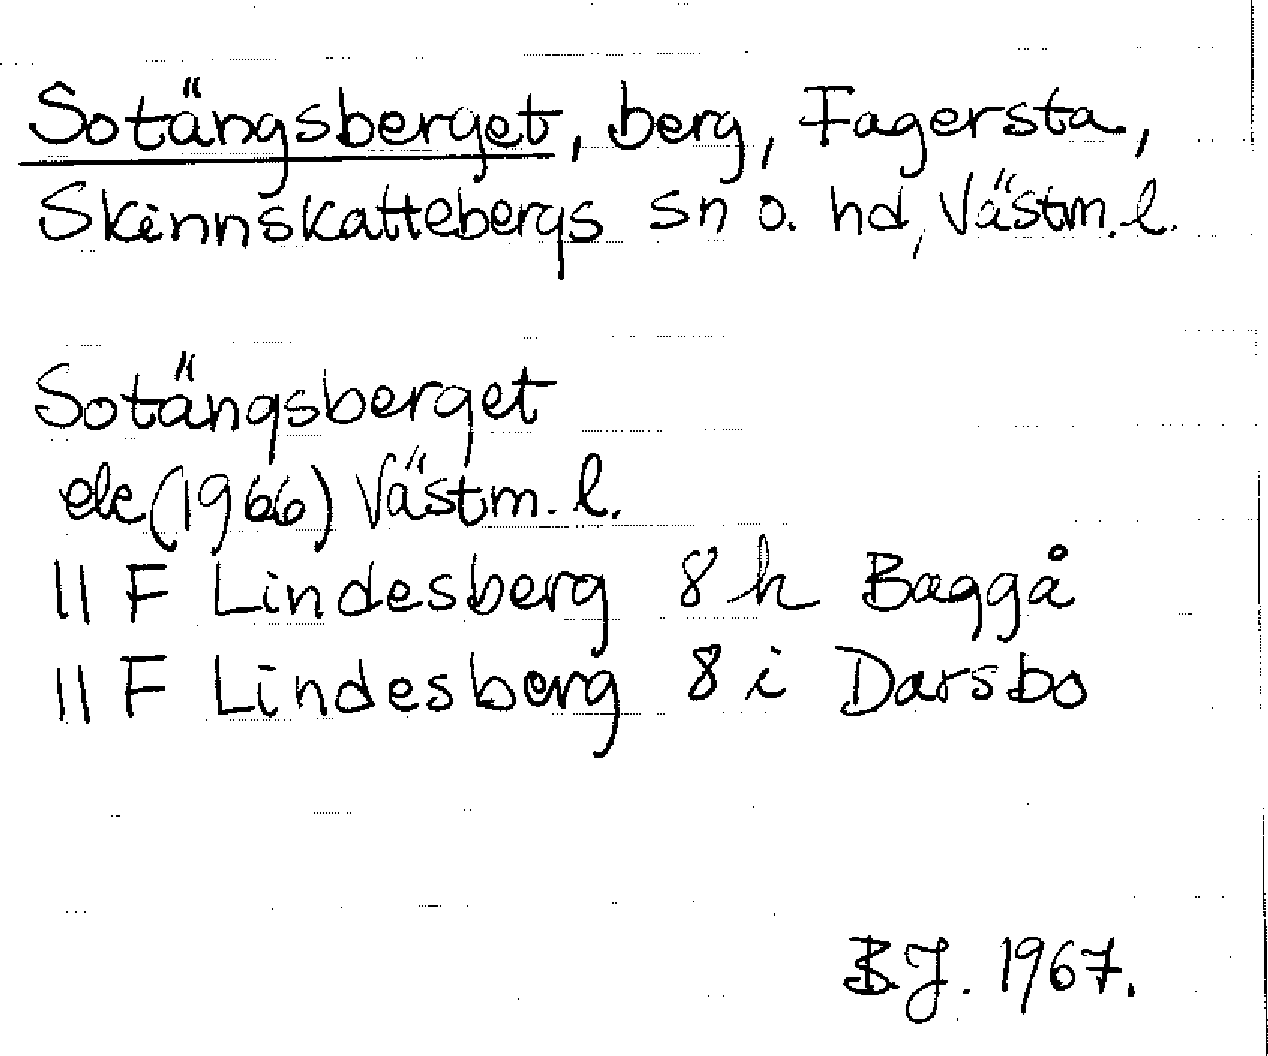 Sotängsberget, berg, Fagersta,
Skinnskattebergs sn o. hd, Västm. l.
Sotängsberget
ek (1966) Västm. l.
11 F Lindesberg 8 h Baggå
11 F Lindesberg 8 i Darsbo
BJ. 1967.